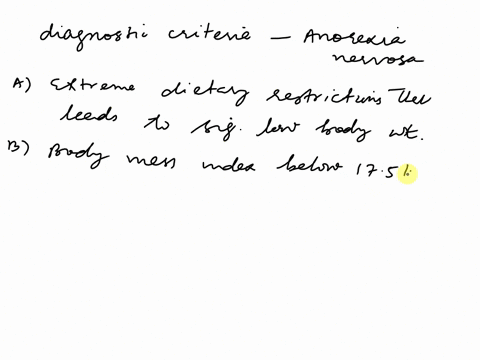 diagnostic criteria — Anorexia
nervosa
A) Extreme dietary restrictions that
leads to sig. low body wt.
B) Body mess index below 17.5 k